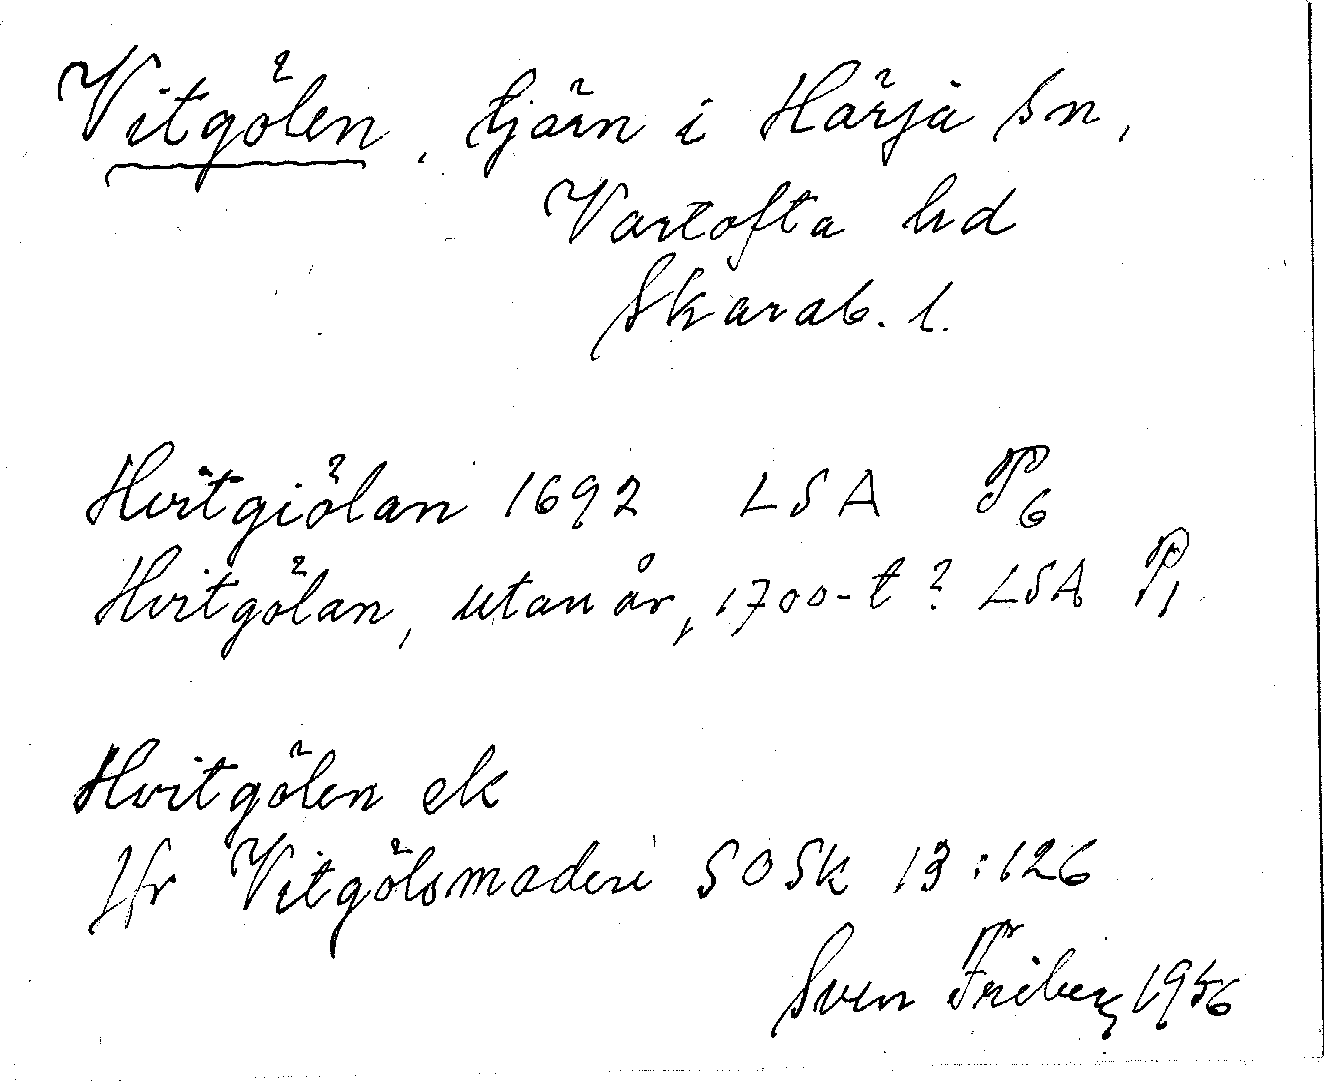 Vitgölen, tjärn i Härja sn,
Vartofta hd
Skarab. l.
Hvitgiölan 1692 LSA P6
Hvitgölan, utan år, 1700-t? LSA P1
Hvitgölen ek
Jfr Vitgölsmaderi SOSk 13:126
Sven Friberg 1956